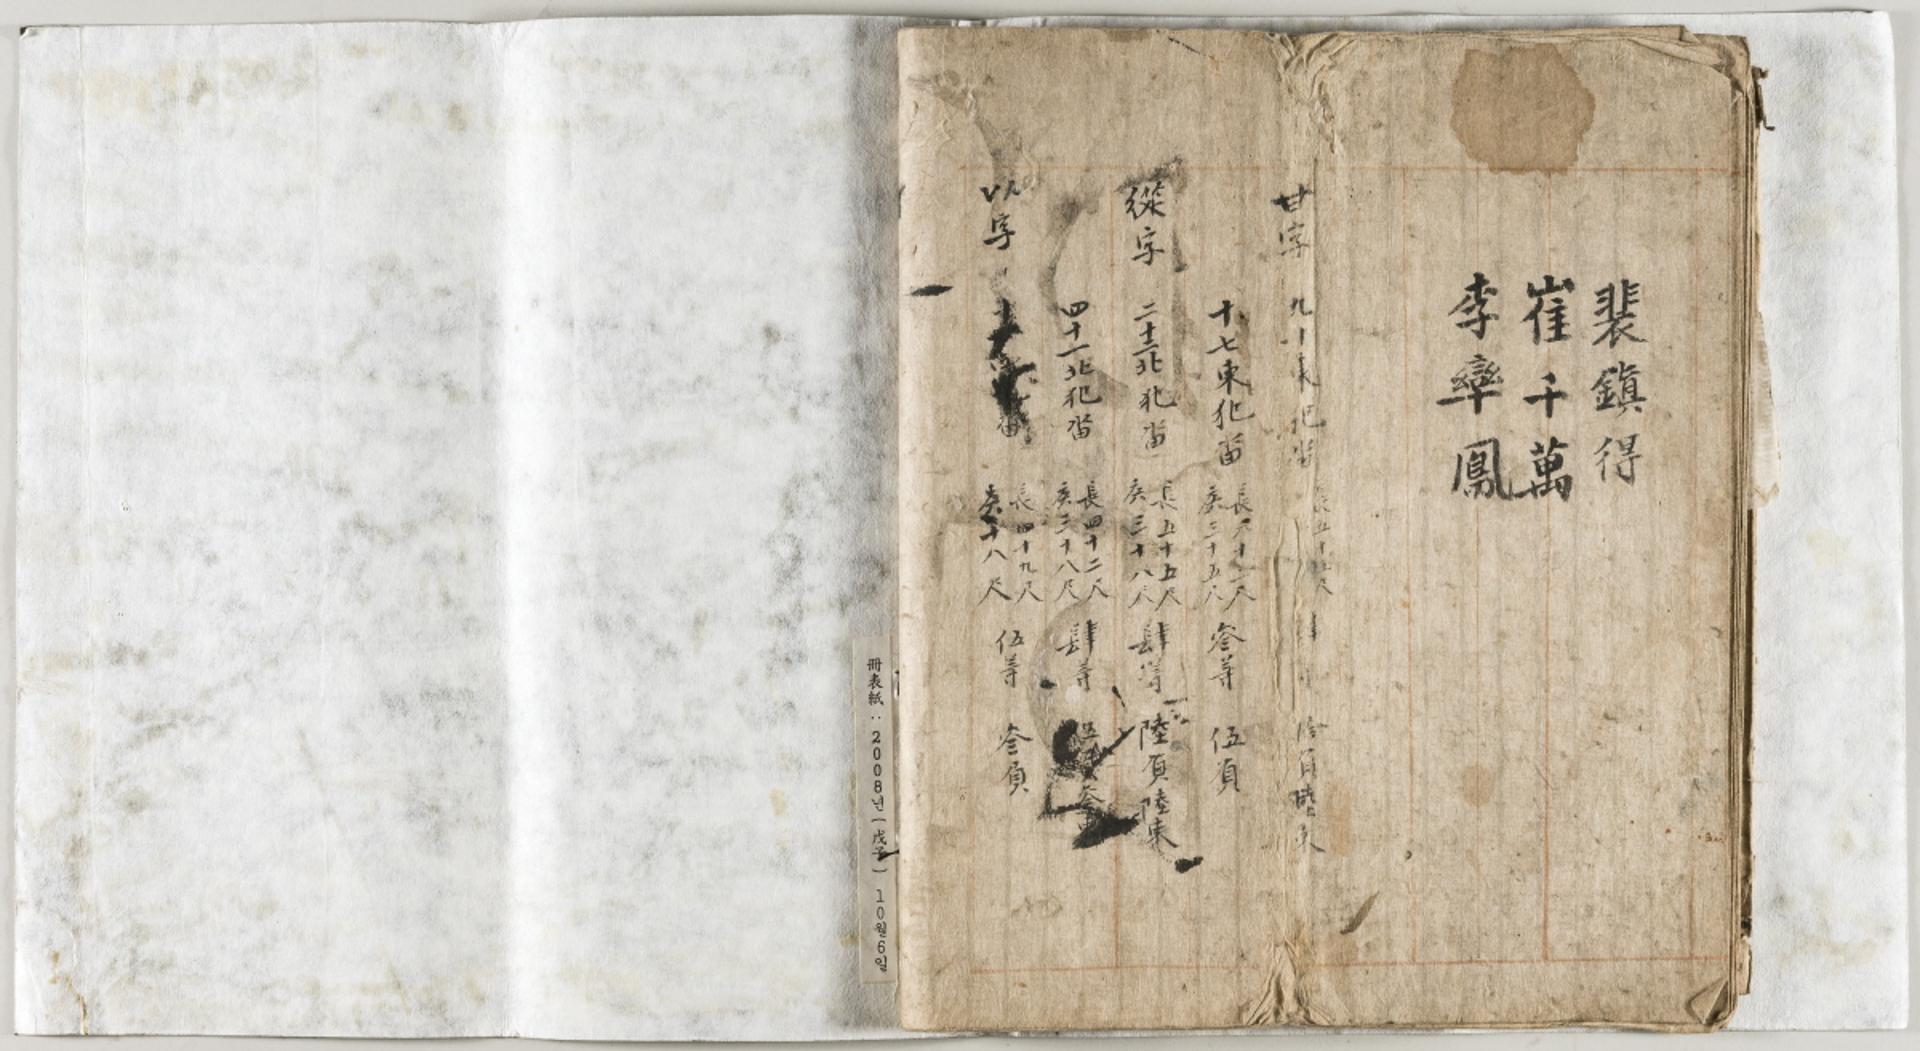 裴鎭得
崔千萬
李䜌鳳
甘字 九十東犯畓 長五十 尺 拾負陸束
十七東犯畓 長六十二尺 廣三十五尺 叄等 伍負
從字 二十二北犯畓 長五十五尺 廣三十八尺 肆等 陸負陸束
四十一北犯畓 長四十二尺 廣三十八尺 肆等
以字 畓 長四十九尺 廣十八尺 伍等 叄負
冊表紙 : 2008년(戊子) 10월6일